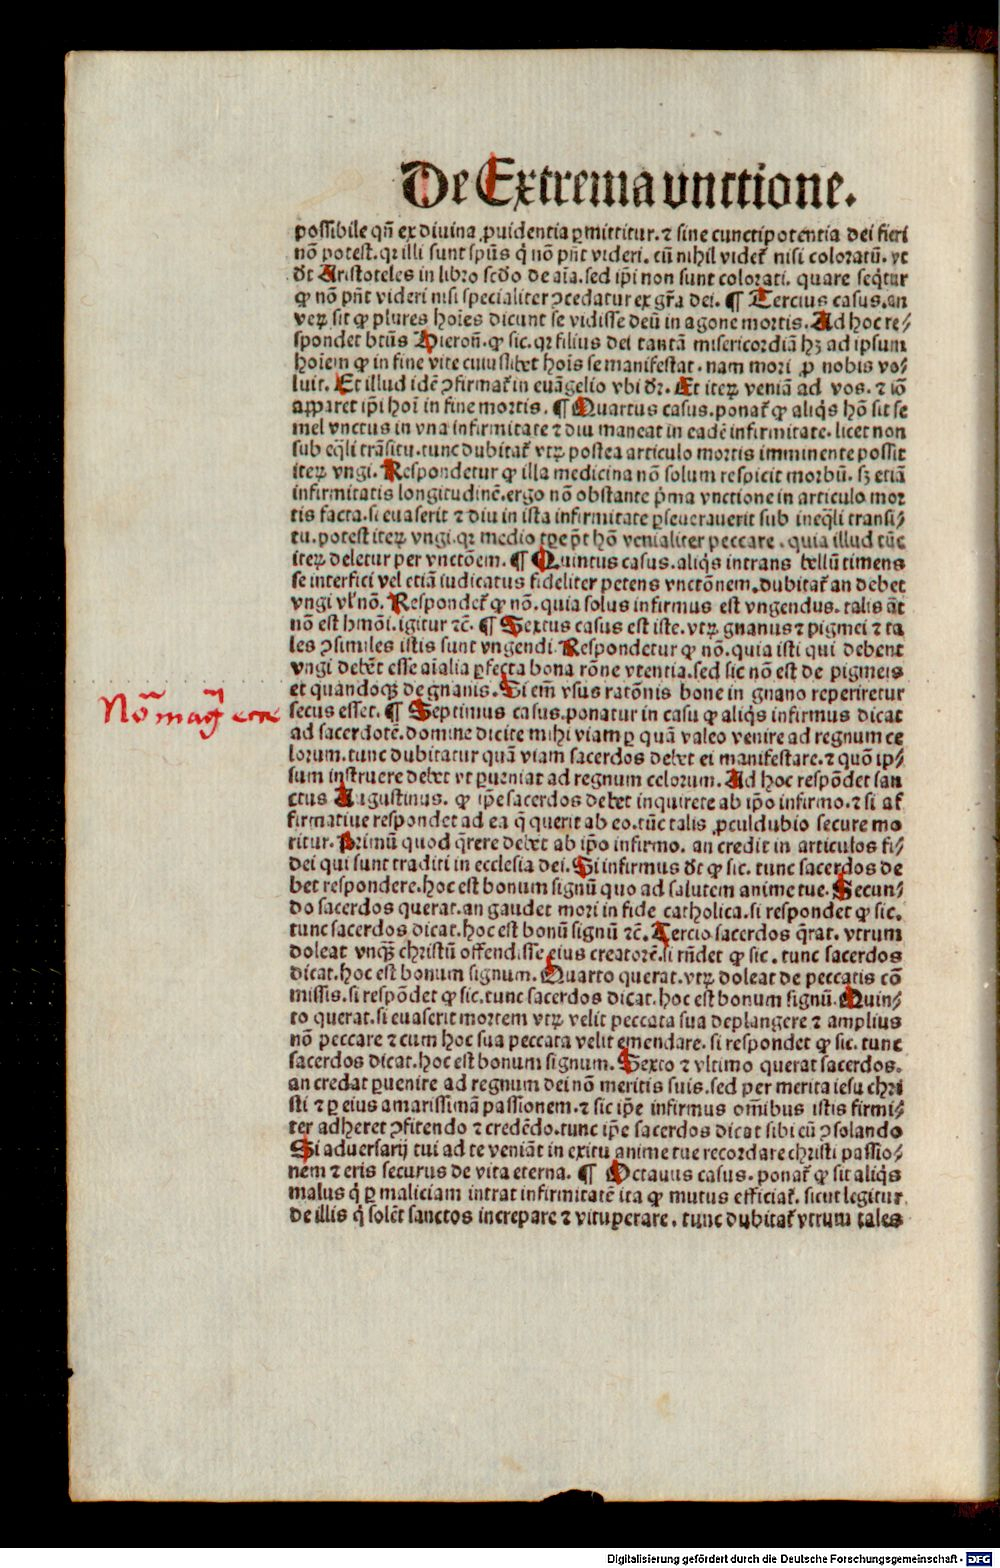 De Extrema vnctione.
possibile qñ ex diuina ꝓuidentia ꝑmittitur. ⁊ sine cunctipotentia dei fieri
nõ potest. qꝛ illi sunt spũs q̇ nõ pñt videri. cũ nihil videt᷑ nisi coloratũ. vt
dt Aristoteles in libro scďo de aĩa. sed ip̃i non sunt colorati. quare seq̇tur
ꝙ nõ pñt videri nisi specialiter ↄcedatur ex gr̃a dei. ¶ Tercius casus. an
veꝝ sit ꝙ plures hoĩes dicunt se vidisse deũ in agone mortis. Ad hoc re⸗
spondet btũs Hieroñ. ꝙ sic. qꝛ filius dei tantã misericordiã hꝫ ad ipsum
hoĩem ꝙ in fine vite cuiuslibet hoĩs se manifestat. nam mori ꝓ nobis vo⸗
luit. Et illud idẽ ↄfirmat᷑ in euãgelio vbi dr̃. Et iteꝝ veniã ad vos. ⁊ iõ
apparet ip̃i hoĩ in fine mortis. ¶ Quartus casus. ponat᷑ ꝙ aliq̇s hõ sit se
mel vnctus in vna infirmitate ⁊ diu maneat in eadẽ infirmitate. licet non
sub eq̇li trãsitu. tunc dubitat᷑ vtꝝ postea articulo mortis imminente possit
iteꝝ vngi. Respondetur ꝙ illa medicina nõ solum respicit morbũ. sꝫ etiã
infirmitatis longitudinẽ. ergo nõ obstante p̃ma vnctione in articulo mor
tis facta. si euaserit ⁊ diu in ista infirmitate ꝑseuerauerit sub ineq̇li transi⸗
tu. potest iteꝝ vngi. qꝛ medio tꝑe põt hõ venialiter peccare. quia illud tũc
iteꝝ deletur per vnctõem. ¶ Quintus casus. aliq̇s intrans bellũ timens
se interfici vel etiã iudicatus fideliter petens vnctõnem. dubitat᷑ an debet
vngi vl̃ nõ. Respondet᷑ ꝙ nõ. quia solus infirmus est vngendus. talis aũt
nõ est hmõi. igitur ⁊c̃. ¶ Sextus casus est iste. vtꝝ gnanus ⁊ pigmei ⁊ ta
les ↄsimiles istis sunt vngendi. Respondetur ꝙ nõ. quia isti qui debent
vngi debẽt esse aĩalia ꝑfecta bona rõne vtentia. sed sic nõ est de pigmeis
et quandoqꝫ de gnanis. Si em̃ vsus ratõnis bone in gnano reperiretur
secus esset. ¶ Septimus casus. ponatur in casu ꝙ aliq̇s infirmus dicat
ad sacerdotẽ. domine dicite mihi viam ꝑ quã valeo venire ad regnum ce
lorum. tunc dubitatur quã viam sacerdos debet ei manifestare. ⁊ quõ ip⸗
sum instruere debet vt ꝑueniat ad regnum celorum. Ad hoc respõdet san
ctus Augustinus. ꝙ ip̃e sacerdos debet inquirere ab ip̃o infirmo. ⁊ si af
firmatiue respondet ad ea q̃ querit ab eo. tũc talis ꝓculdubio secure mo
ritur. Primũ quod q̃rere debet ab ip̃o infirmo. an credit in articulos fi⸗
dei qui sunt traditi in ecclesia dei. Si infirmus dt ꝙ sic. tunc sacerdos de
bet respondere. hoc est bonum signũ quo ad salutem anime tue. Secun⸗
do sacerdos querat. an gaudet mori in fide catholica. si respondet ꝙ sic.
tunc sacerdos dicat. hoc est bonũ signũ ⁊c̃. Tercio sacerdos q̃rat. vtrum
doleat vnqꝫ christũ offendisse eius creatorẽ. si rñdet ꝙ sic. tunc sacerdos
dicat. hoc est bonum signum. Quarto querat. vtꝝ doleat de peccatis cõ
missis. si respõdet ꝙ sic. tunc sacerdos dicat. hoc est bonum signũ. Quin⸗
to querat. si euaserit mortem vtꝝ velit peccata sua deplangere ⁊ amplius
nõ peccare ⁊ cum hoc sua peccata velit emendare. si respondet ꝙ sic. tunc
sacerdos dicat. hoc est bonum signum. Sexto ⁊ vltimo querat sacerdos.
an credat ꝑuenire ad regnum dei nõ meritis suis. sed per merita iesu chri
sti ⁊ ꝑ eius amarissimã passionem. ⁊ sic ip̃e infirmus om̃ibus istis firmi⸗
ter adheret ↄfitendo ⁊ credẽdo. tunc ip̃e sacerdos dicat sibi eũ ↄsolando
Si aduersarij tui ad te veniãt in exitu anime tue recordare christi passio⸗
nem ⁊ eris securus de vita eterna. ¶ Octauus casus. ponat᷑ ꝙ sit aliq̇s
malus q̇ ꝑ maliciam intrat infirmitatẽ ita ꝙ mutus efficiat᷑. sicut legitur
de illis q̇ solẽt sanctos increpare ⁊ vituperare. tunc dubitat᷑ vtrum tales
Digitalisierung gefördert durch die Deutsche Forschungsgemeinschaft - DFG